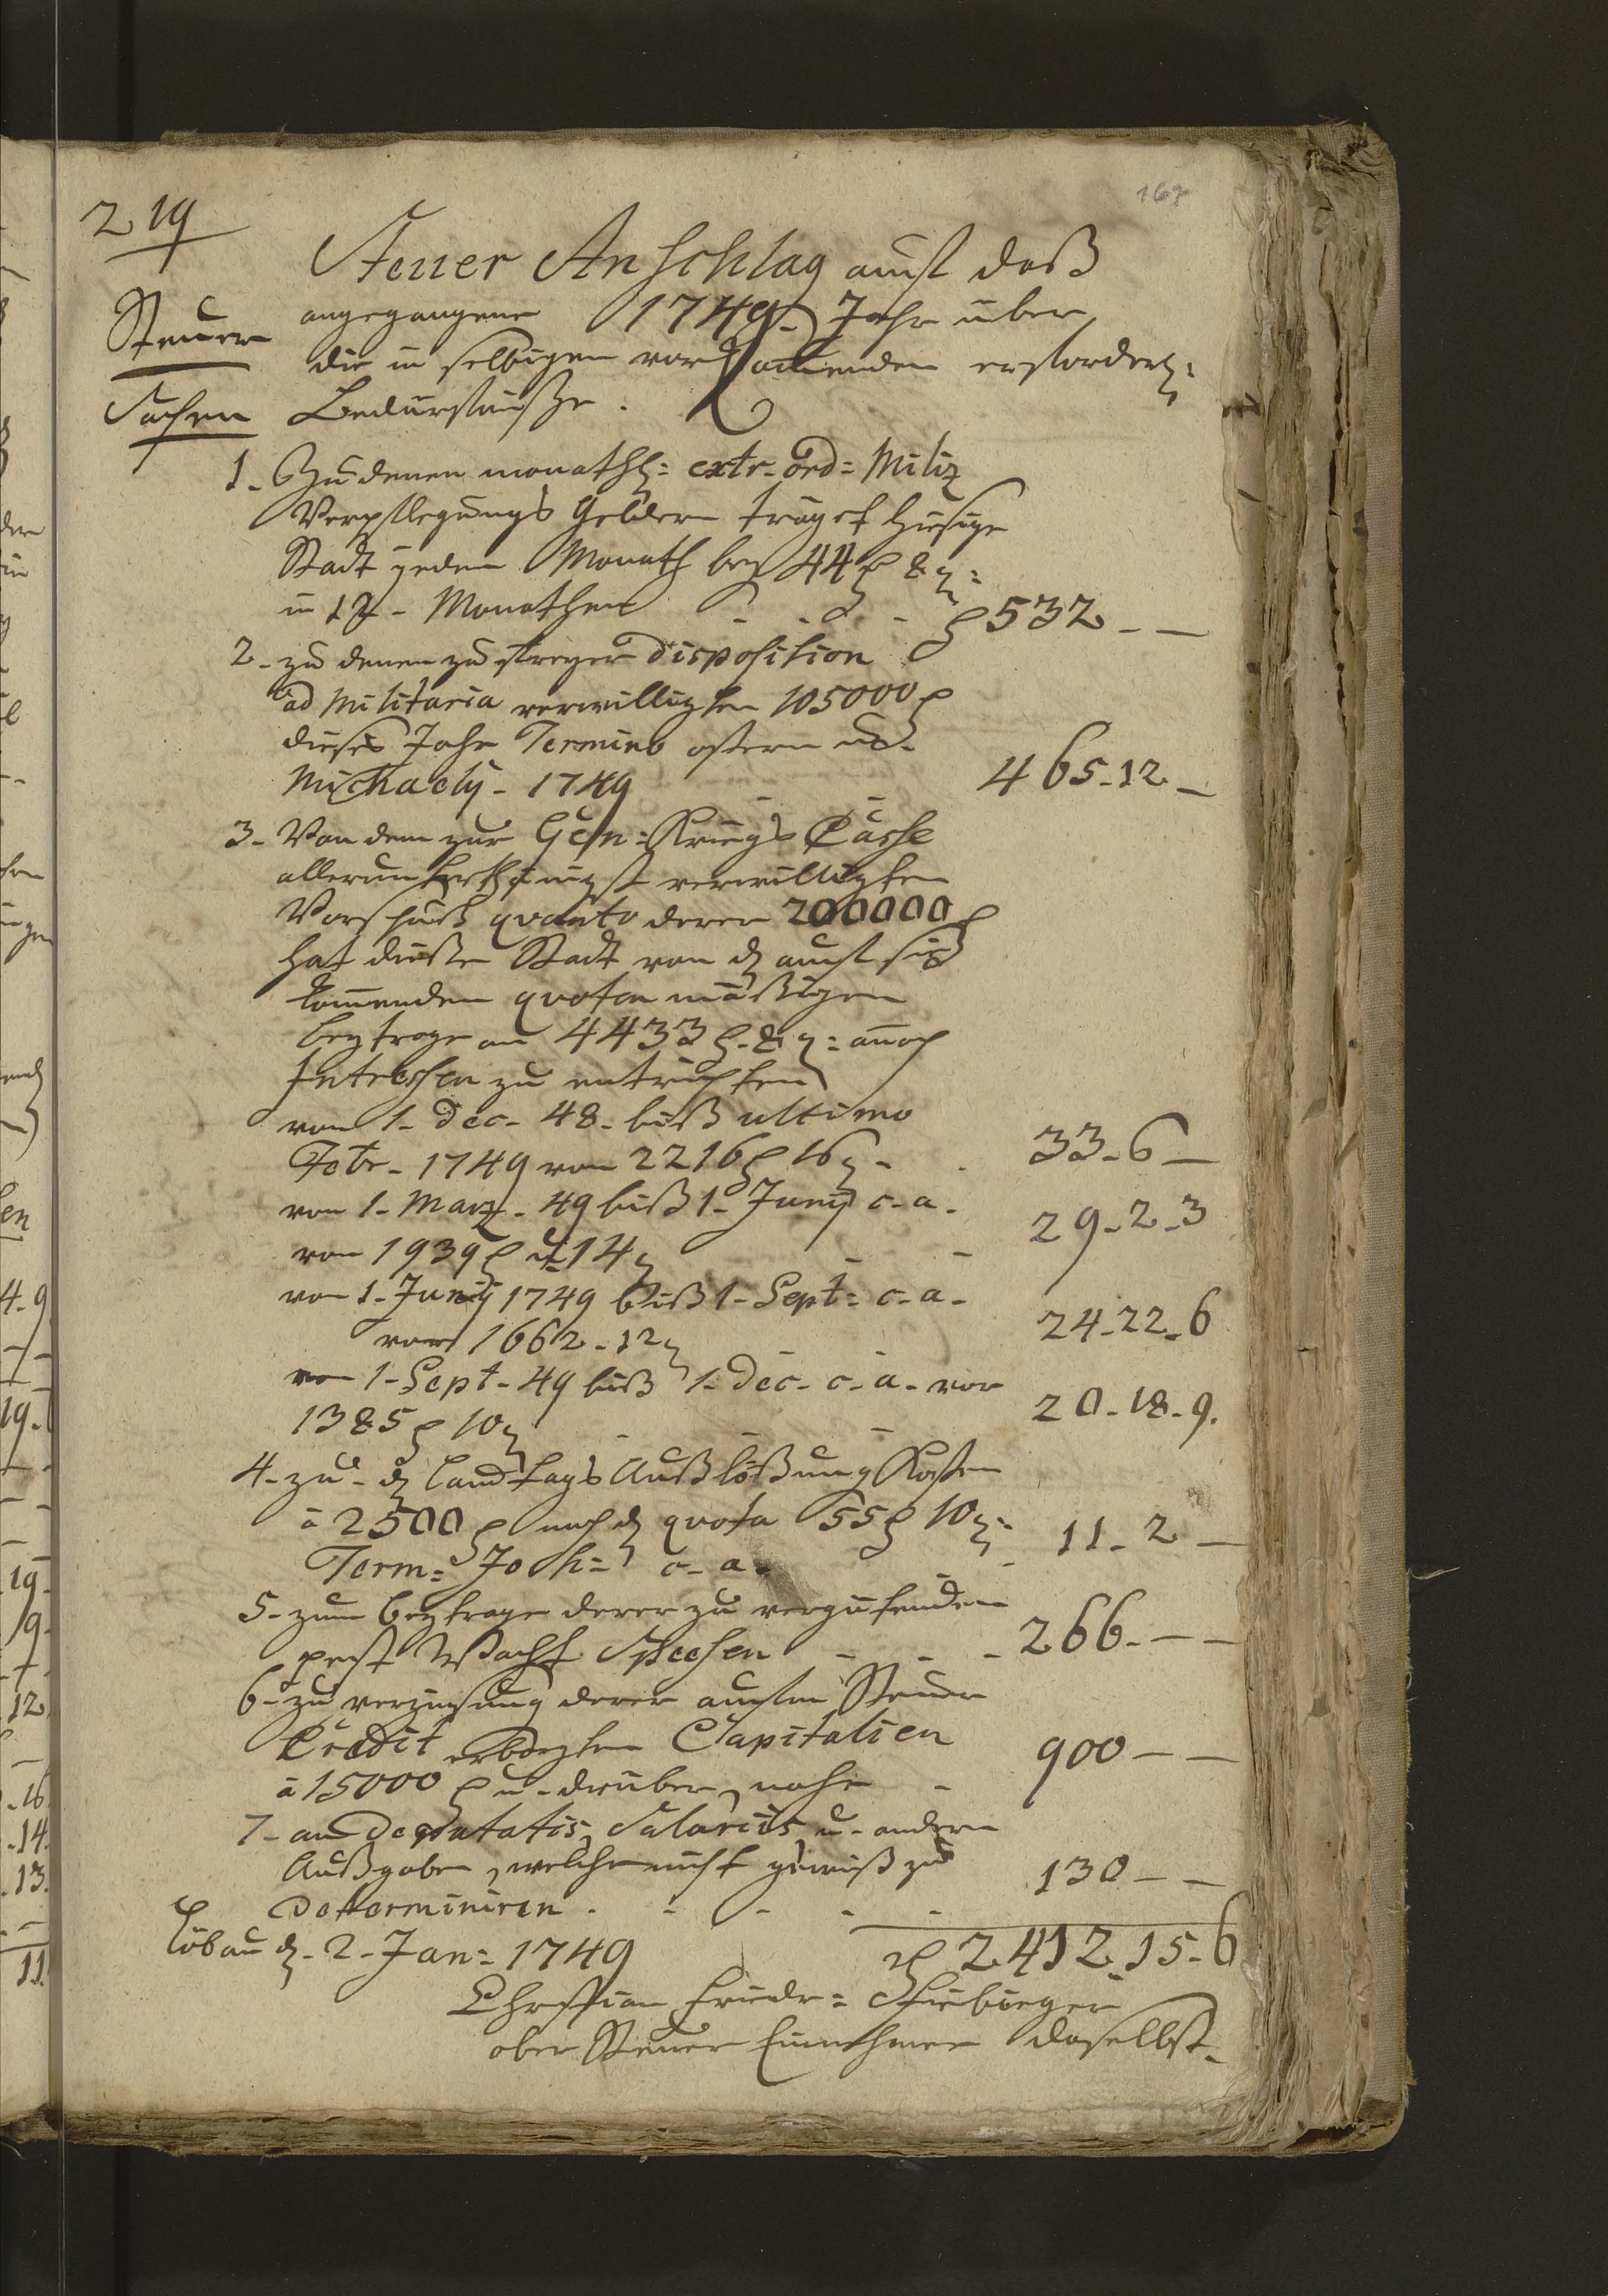 167
219
Steuer Anschlag auf daß
Steuer
angegangene 1749. Jahr über
die in selbigen vorkommenden erforderl:
Sachen
Bedürfniße.
1. Zu denen monathl: extr. ord: Miliz
Verpflegungs Geldern trägt hiesige
Stadt jeden Monath bey 44 rl 8 g:
in 12 - Monathen - - - rl 532 - -
2. zu denen zu freyer disposition
ad Militaria verwilligten 105000 rl
dieses Jahr Termino ostern u.
Michaely. 1749 - - 465. 12 -
3. Von dem zur Gen: Kriegs Casse
allerunterthänigst verwilligten
Vorschuß quanto derer 200000 rl
hat diese Stadt von d. auf sich
kommenden quoten mäßigen
beytrage an 4433 rl. 8 g: annoch
Interessen zu entrichten
von 1. Dec. 48. biß ultimo
Febr. 1749 von 2216 rl 16 g. - 33. 6 -
von 1. Marz. 49 biß 1. Junij c. a.
von 1939 rl u. 14 g - - 29. 2. 3
von 1. Junij 1749 biß 1. Sept: c. a.
von 1662. 12 g - - 24. 22. 6
von 1. Sept. 49 biß 1. Dec. c. a. von
1385 rl 10 g - - - 20. 18. 9.
4. zu d. Landtags Außlößung Kosten
à 2500 rl nach d. quota 55 rl 10 g:
Term: Joh: c. a. - - 11. 2 -
5. zum beytrage derer zu vergütenden
pest Wacht Speesen - - - 266. - -
6. zu verzinsung derer auf den Steuer
Credit erborgten Capitalien
à 15000 rl u. drüber, nahe - 900 - -
7. an Deputatis, Salariis u. andern
Außgaben, welche nicht gewiß zu
determiniren. - - - - 130 - -
rl 2412. 15. 6
Löbau d. 2. Jan: 1749
Christian Friedr:
ober Steuer Einnehmer daselbst.